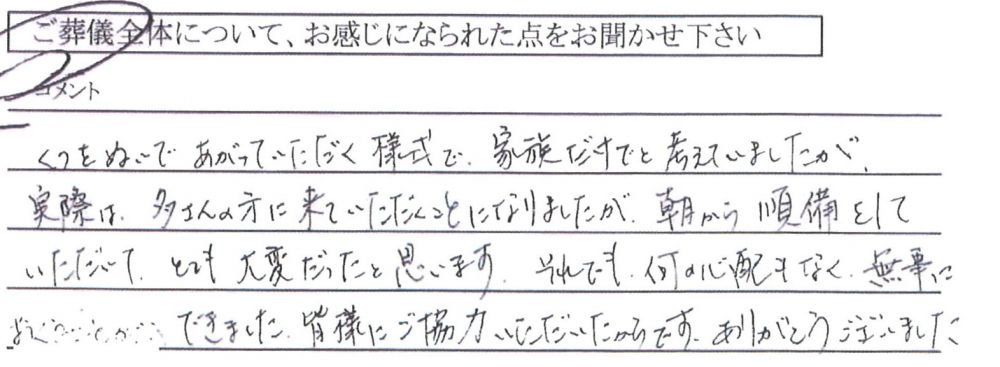 ご葬儀全体について、お感じになられた点をお聞かせ下さい
コメント
くつをぬいであがっていただく様式で、家族だけでと考えていましたが、
実際は、多さんの方に来ていただくことになりましたが、朝から順備をして
いただいて、とても大変だったと思います。それでも、何の心配もなく、無事に
できました。皆様にご協力いただいたからです。ありがとうございました